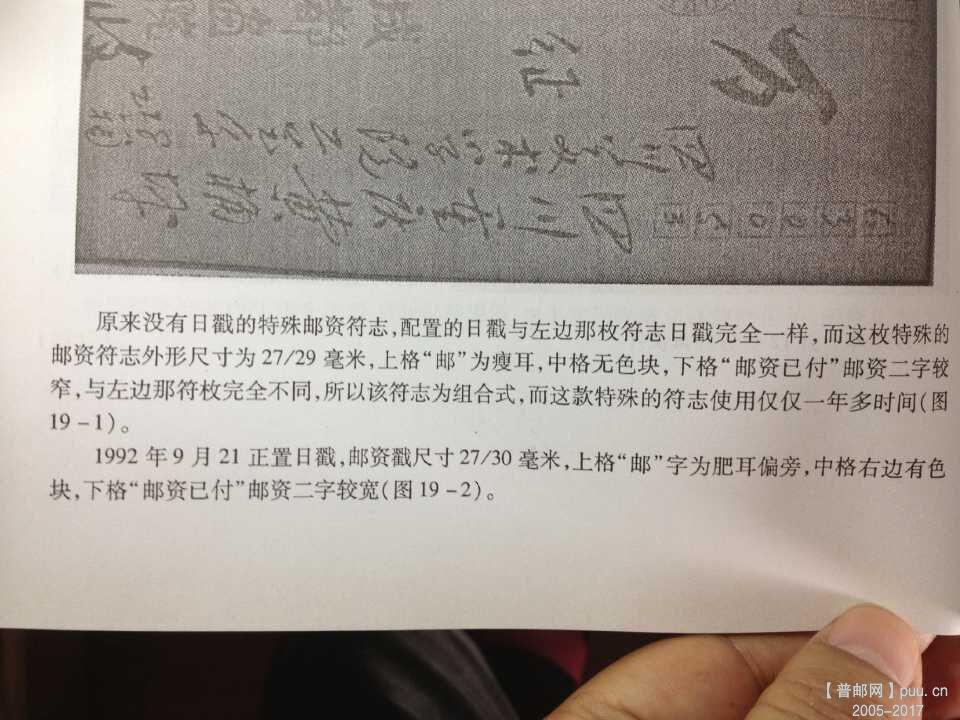 四川
原来没有日戳的特殊邮资符志,配置的日戳与左边那枚符志日戳完全一样,而这枚特殊的
邮资符志外形尺寸为27/29毫米,上格“邮”为瘦耳,中格无色块,下格“邮资已付”邮资二字较
窄,与左边那符枚完全不同,所以该符志为组合式,而这款特殊的符志使用仅仅一年多时间(图
19-1)。
1992年9月21正置日戳,邮资戳尺寸27/30毫米,上格“邮”字为肥耳偏旁,中格右边有色
块,下格“邮资已付”邮资二字较宽(图19-2)。
【普邮网】puu.cn
2005-2017